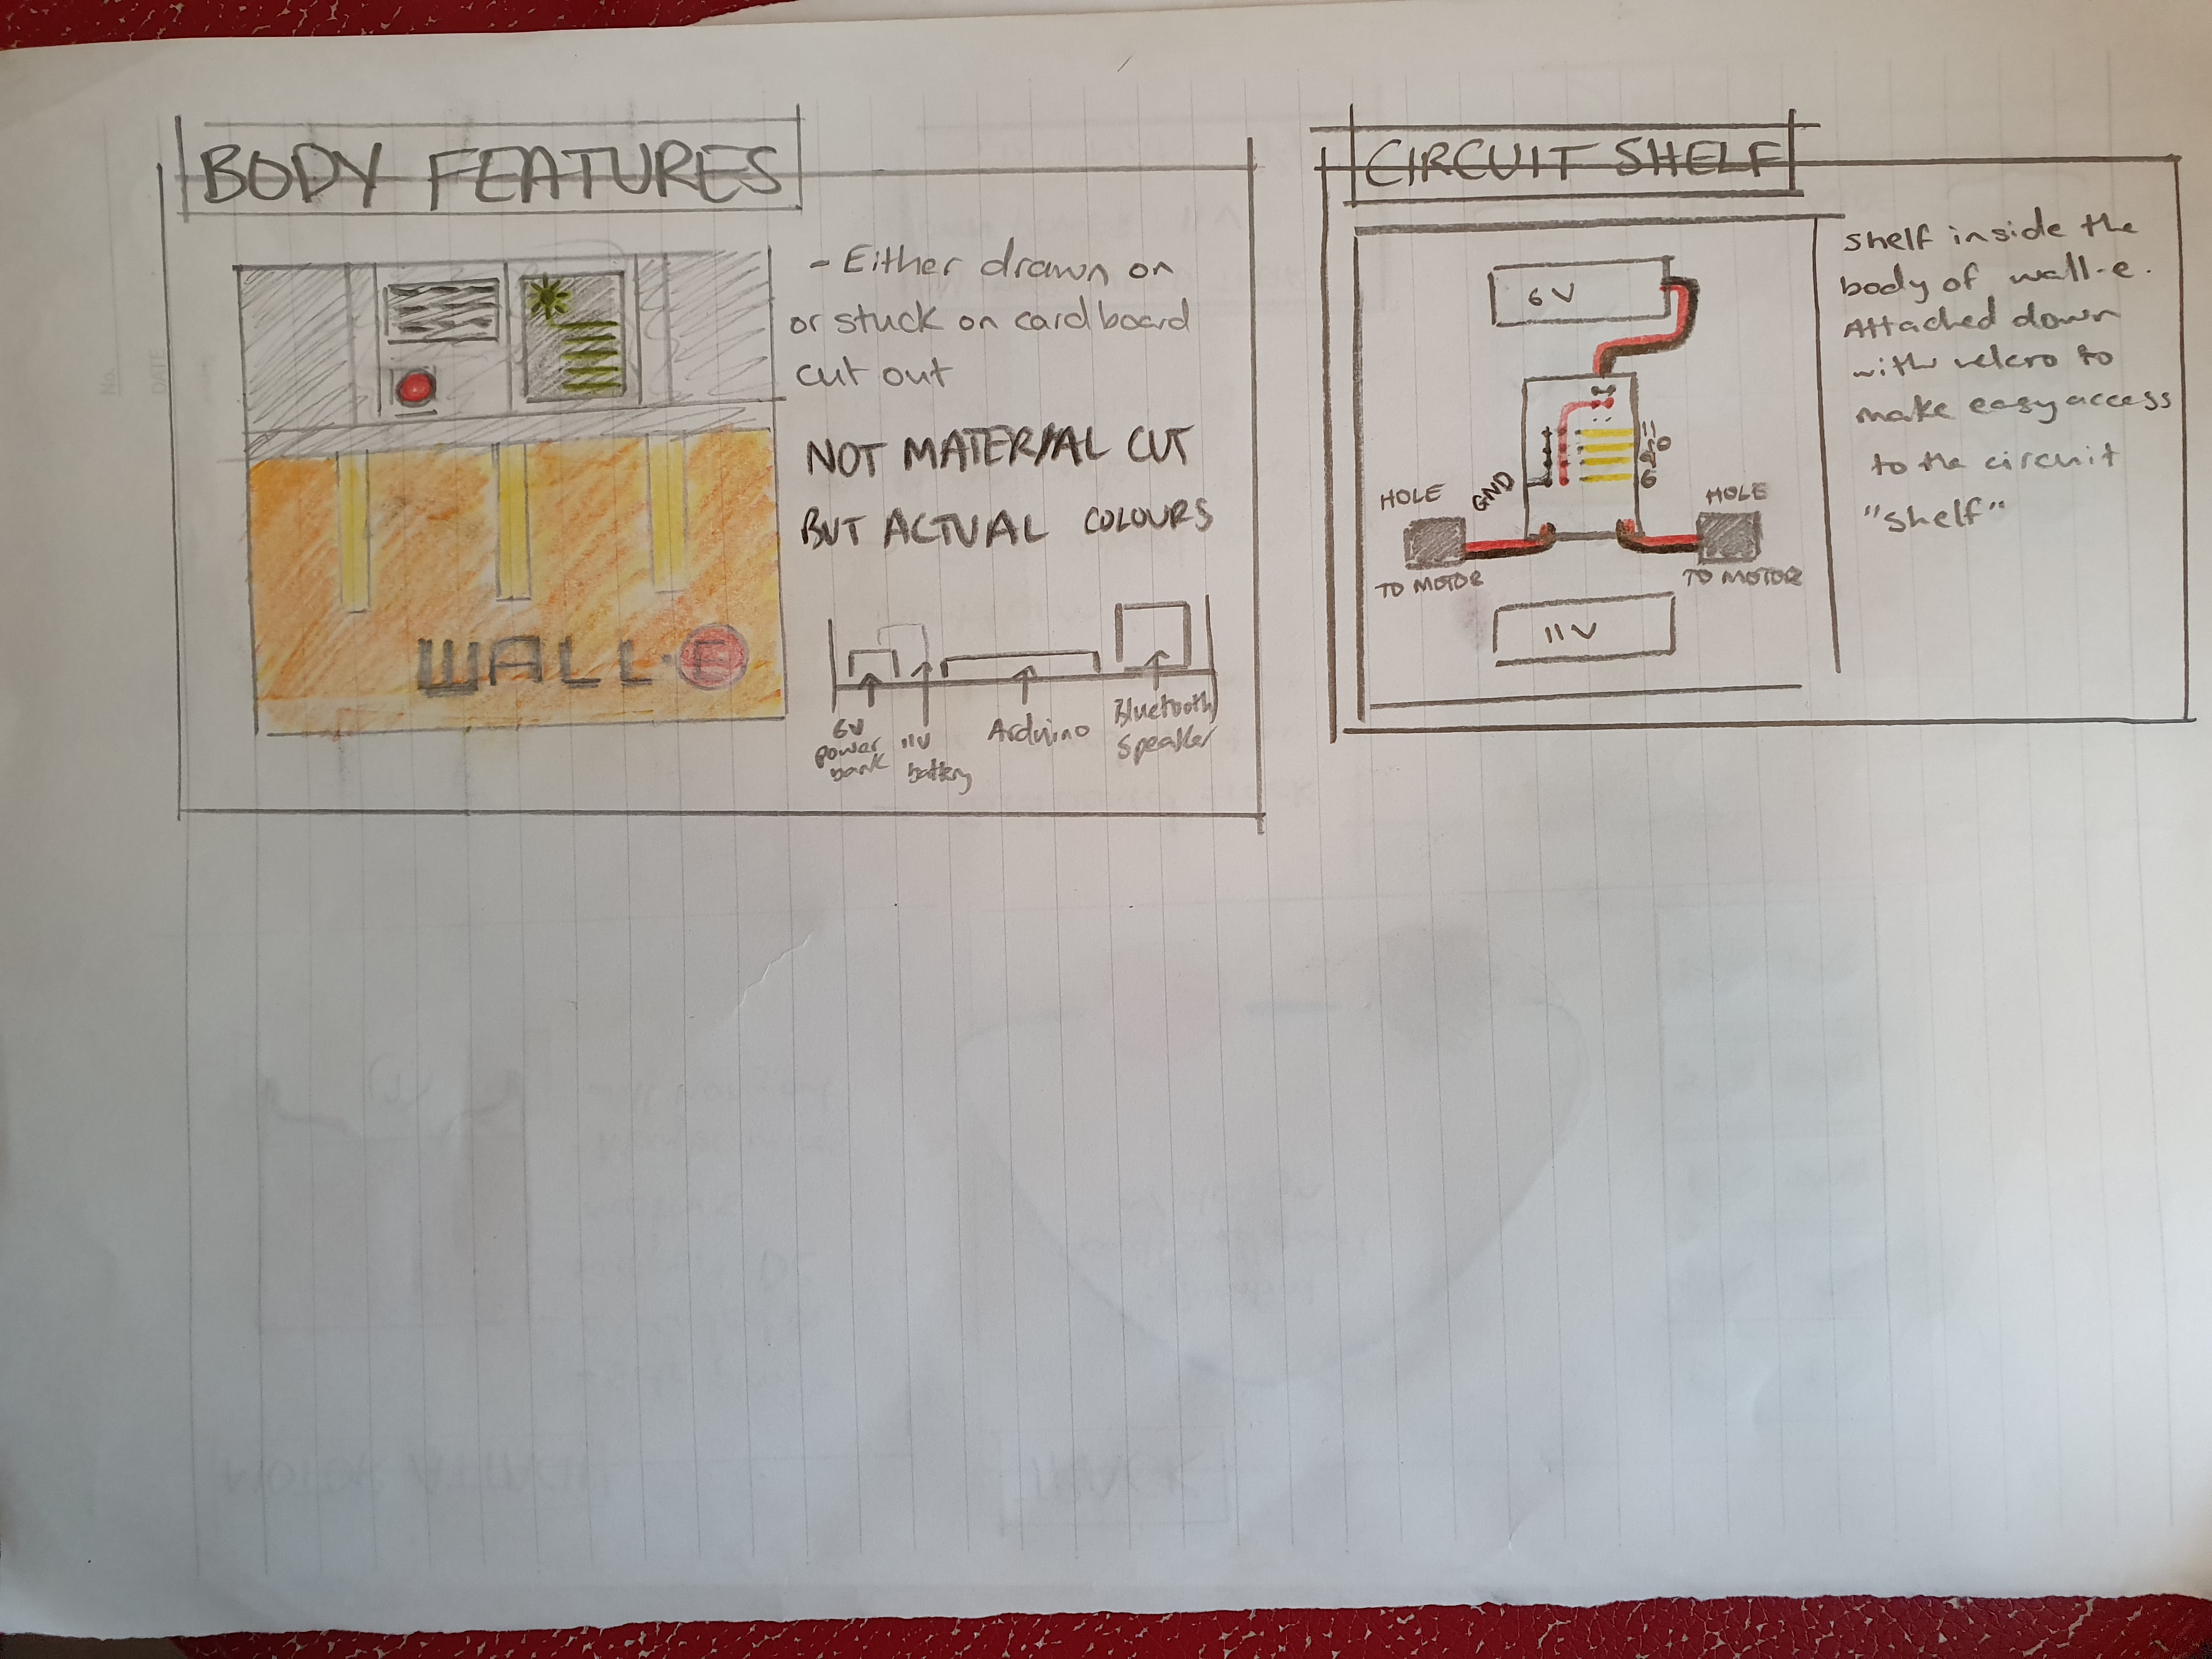 No.
DATE
BODY FEATURES
- Either drawn on
or stuck on cardboard
cut out
NOT MATERIAL CUT
BUT ACTUAL COLOURS
WALL·E
6V
power
bank
11V
battery
Arduino
Bluetooth
Speaker
CIRCUIT SHELF
6V
11
10
9
6
GND
HOLE
TO MOTOR
HOLE
TO MOTOR
11V
Shelf inside the
body of wall-e.
Attached down
with velcro to
make easy access
to the circuit
"shelf"